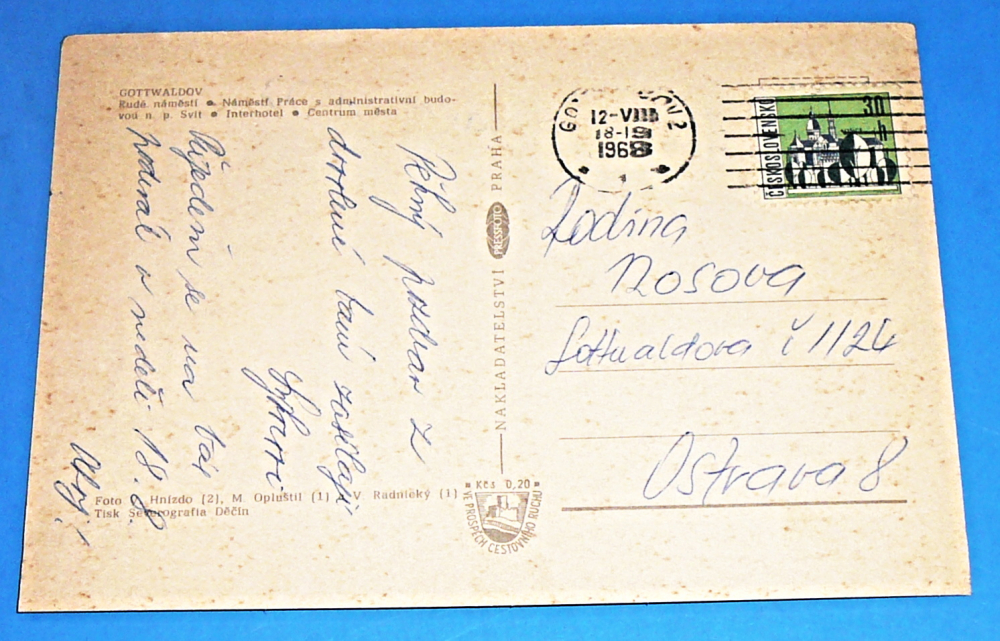 GOTTWALDOV
Rudé náměstí • Náměstí Práce s administrativní budo-
vou n. p. Svit • Interhotel • Centrum města
Pěkný pozdrav z
dovolené Vám zasílají
Přijedem se na Vás
podívat v neděli 18.
Ahoj!
Foto Hnízdo (2), M. Opluštil (1) V. Radnický (1)
Tisk Severografia Děčín
NAKLADATELSTVÍ PRESSFOTO PRAHA
Kčs 0,20
VE PROSPĚCH CESTOVNÍHO RUCHU
GO OV 2
12-VIII
18-19
1968
ČESKOSLOVENSKO
30
h
Rodina
Nosova
Gottwaldova č 1124
Ostrava 8